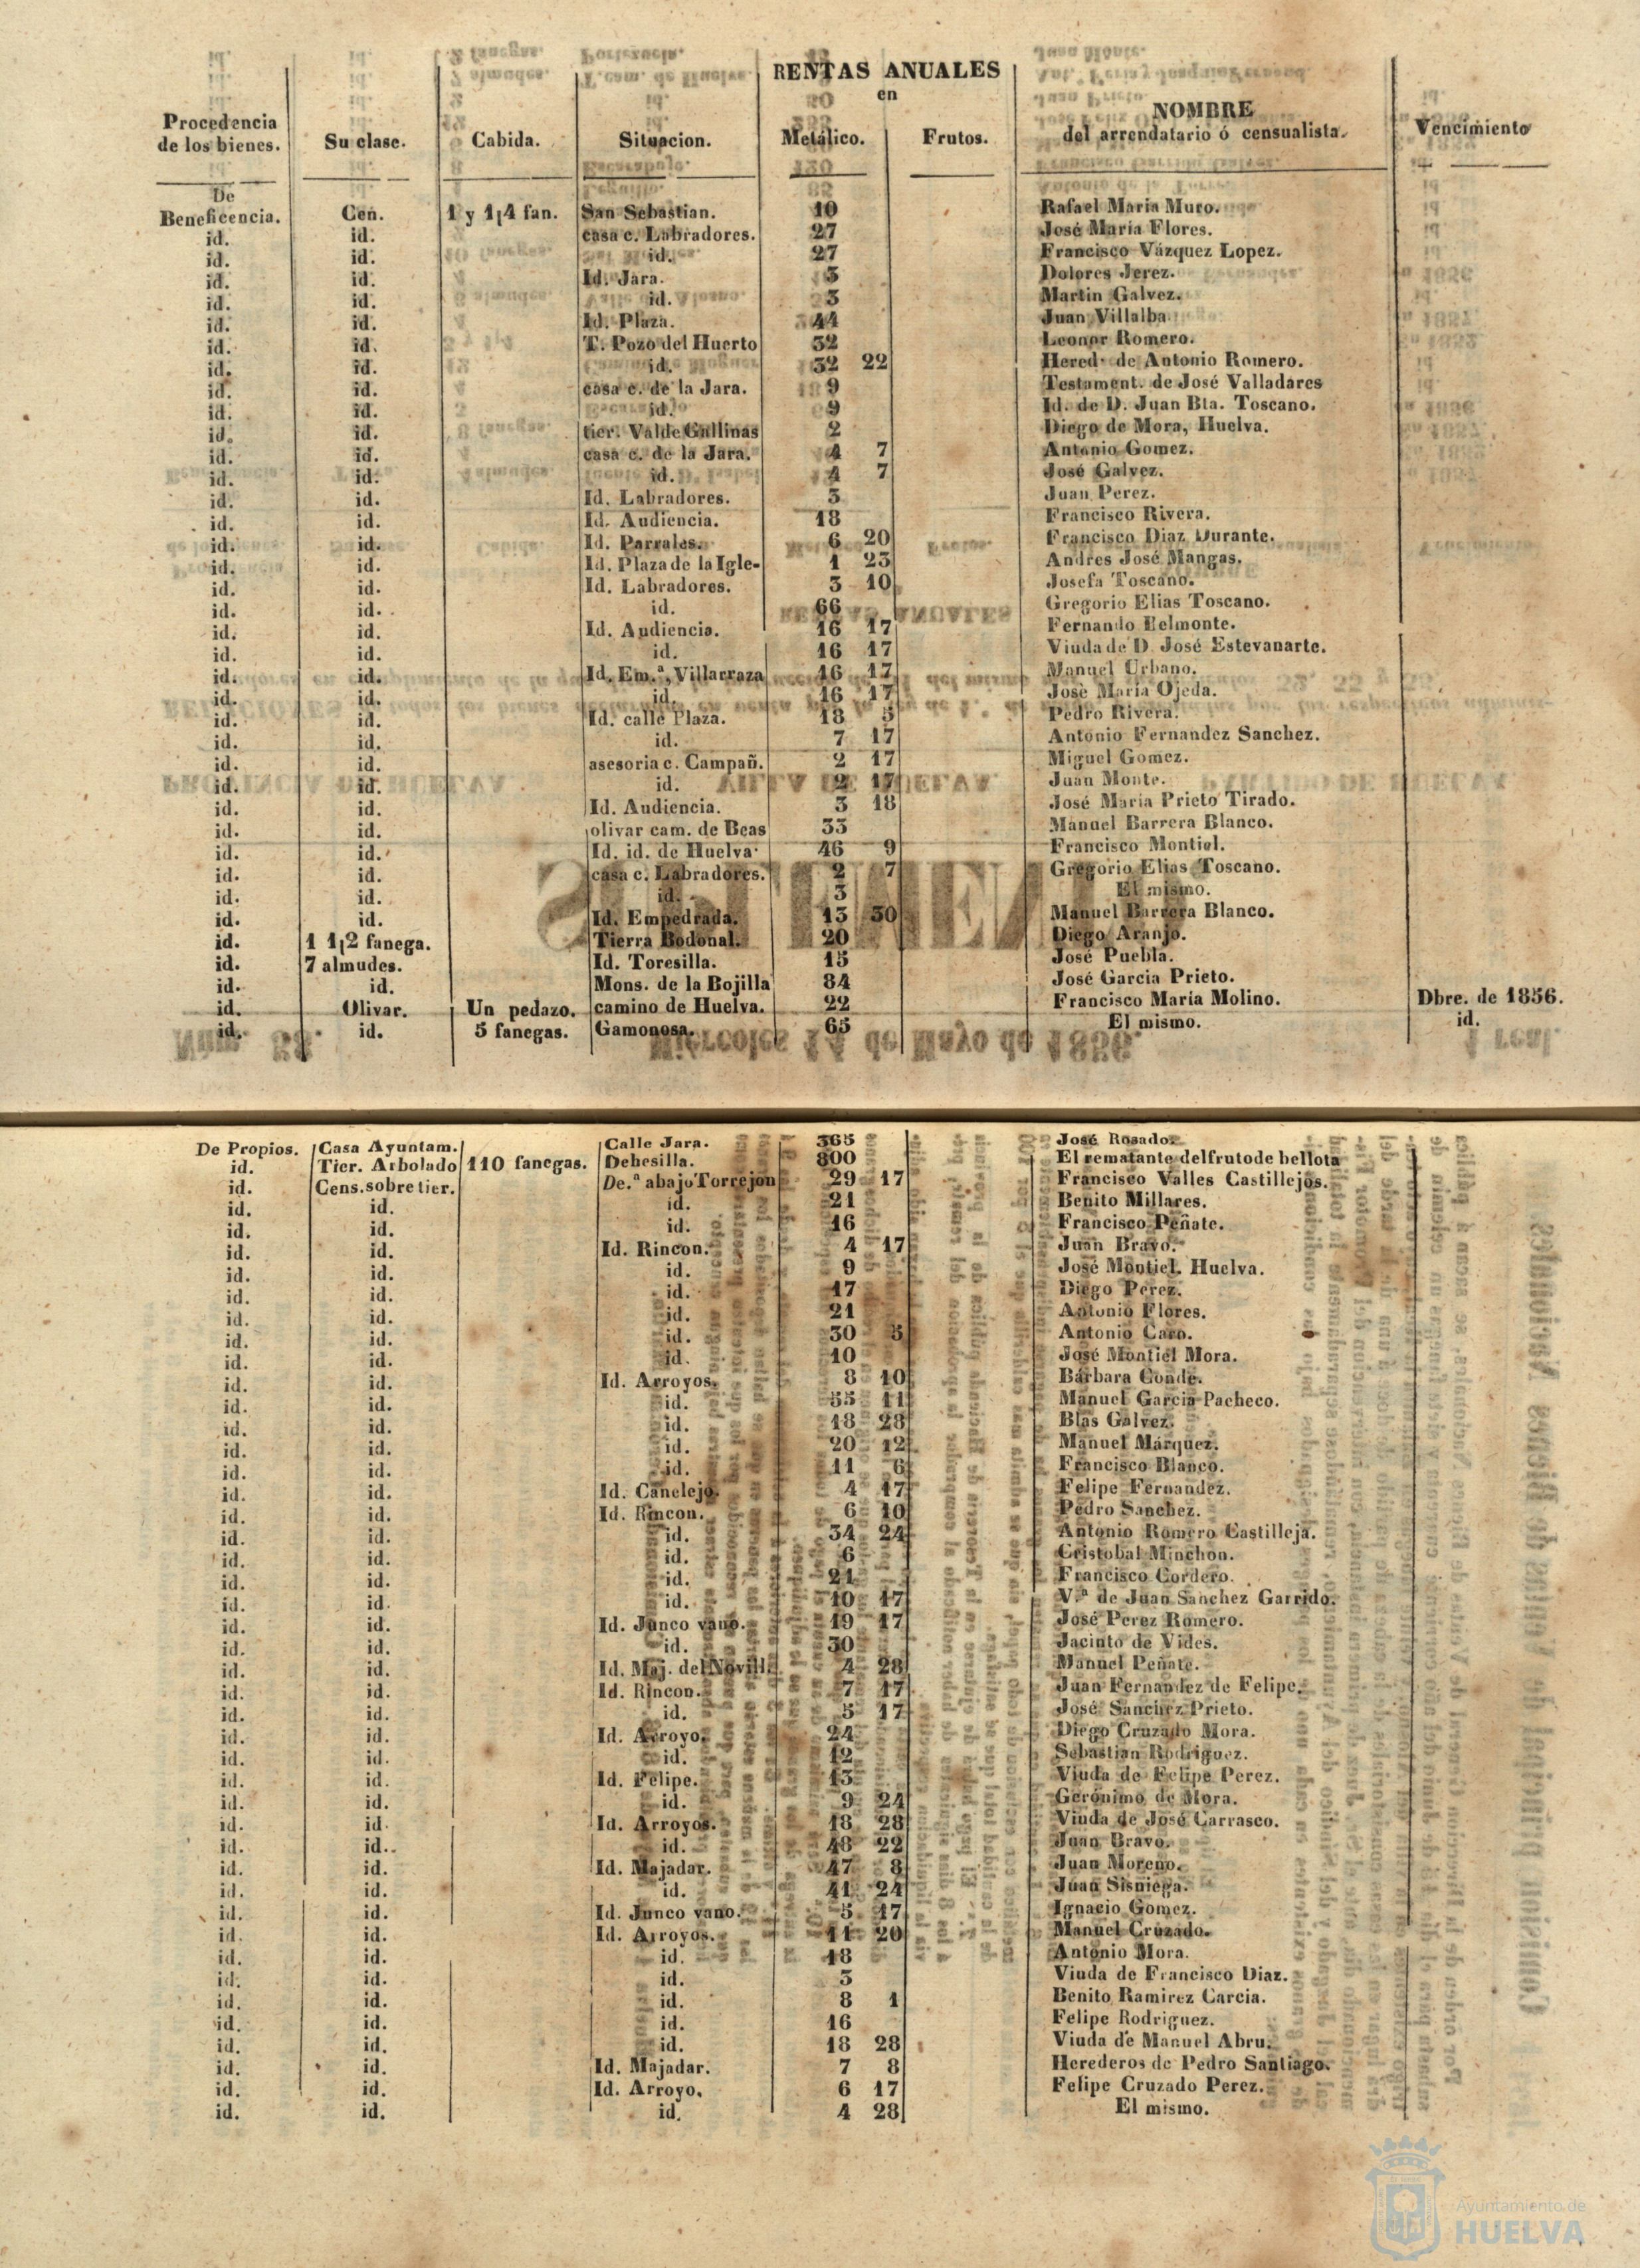 RENTAS ANUALES
en
Procedencia de los bienes. Su clase. Cabida. Situacion. Metálico. Frutos. NOMBRE del arrendatario ó censualista. Vencimiento
De
Beneficencia. Cen. 1 y 1¡4 fan. San Sebastian. 10 Rafael Maria Muro.
id. id. casa c. Labradores. 27 José Maria Flores.
id. id. id. 27 Francisco Vázquez Lopez.
id. id. Id. Jara. 3 Dolores Jerez.
id. id. id. 3 Martin Galvez.
id. id. Id. Plaza. 44 Juan Villalba.
id. id. T. Pozo del Huerto 32 Leonor Romero.
id. id. id. 32 22 Hered. de Antonio Romero.
id. id. casa c. de la Jara. 9 Testament. de José Valladares
id. id. id. 9 Id. de D. Juan Bta. Toscano.
id. id. tier. Valde Gallinas 2 Diego de Mora, Huelva.
id. id. casa c. de la Jara. 4 7 Antonio Gomez.
id. id. id. 4 7 José Galvez.
id. id. Id. Labradores. 3 Juan Perez.
id. id. Id. Audiencia. 18 Francisco Rivera.
id. id. Id. Parrales. 6 20 Francisco Diaz Durante.
id. id. Id. Plaza de la Igle- 1 23 Andres José Mangas.
id. id. Id. Labradores. 3 10 Josefa Toscano.
id. id. id. 66 Gregorio Elias Toscano.
id. id. Id. Audiencia. 16 17 Fernando Belmonte.
id. id. id. 16 17 Viuda de D. José Estevanarte.
id. id. Id. Em.ª, Villarraza 16 17 Manuel Urbano.
id. id. id. 16 17 José Maria Ojeda.
id. id. Id. calle Plaza. 18 5 Pedro Rivera.
id. id. id. 7 17 Antonio Fernandez Sanchez.
id. id. asesoria c. Campañ. 2 17 Miguel Gomez.
id. id. id. 2 17 Juan Monte.
id. id. Id. Audiencia. 3 18 José Maria Prieto Tirado.
id. id. olivar cam. de Beas 33 Manuel Barrera Blanco.
id. id. Id. id. de Huelva 46 9 Francisco Montiel.
id. id. casa c. Labradores. 2 7 Gregorio Elias Toscano.
id. id. id. 3 El mismo.
id. id. Id. Empedrada. 13 30 Manuel Barrera Blanco.
id. 1 1¡2 fanega. Tierra Bodonal. 20 Diego Aranjo.
id. 7 almudes. Id. Toresilla. 15 José Puebla.
id. id. Mons. de la Bojilla 84 José Garcia Prieto.
id. Olivar. Un pedazo. camino de Huelva. 22 Francisco Maria Molino. Dbre. de 1856.
id. id. 5 fanegas. Gamonosa. 65 El mismo. id.
De Propios. Casa Ayuntam. Calle Jara. 365 José Rosado.
id. Tier. Arbolado 110 fanegas. Dehesilla. 800 El rematante del fruto de bellota
id. Cens. sobre tier. De.ª abajo Torrejon 29 17 Francisco Valles Castillejos.
id. id. id. 21 Benito Millares.
id. id. id. 16 Francisco Peñate.
id. id. Id. Rincon. 4 17 Juan Bravo.
id. id. id. 9 José Montiel. Huelva.
id. id. id. 17 Diego Perez.
id. id. id. 21 Antonio Flores.
id. id. id. 30 5 Antonio Caro.
id. id. id. 10 José Montiel Mora.
id. id. Id. Arroyos. 8 10 Bárbara Conde.
id. id. id. 55 11 Manuel Garcia Pacheco.
id. id. id. 18 28 Blas Galvez.
id. id. id. 20 12 Manuel Márquez.
id. id. id. 11 6 Francisco Blanco.
id. id. Id. Canelejo. 4 17 Felipe Fernandez.
id. id. Id. Rincon. 6 10 Pedro Sanchez.
id. id. id. 34 24 Antonio Romero Castilleja.
id. id. id. 6 Cristobal Minchon.
id. id. id. 21 Francisco Cordero.
id. id. id. 10 17 V.ª de Juan Sanchez Garrido.
id. id. Id. Junco vano. 19 17 José Perez Romero.
id. id. id. 30 Jacinto de Vides.
id. id. Id. Maj. del Novill. 4 28 Manuel Peñate.
id. id. Id. Rincon. 7 17 Juan Fernandez de Felipe.
id. id. id. 5 17 José Sanchez Prieto.
id. id. Id. Arroyo. 24 Diego Cruzado Mora.
id. id. id. 12 Sebastian Rodriguez.
id. id. Id. Felipe. 13 Viuda de Felipe Perez.
id. id. id. 9 24 Gerónimo de Mora.
id. id. Id. Arroyos. 18 28 Viuda de José Carrasco.
id. id. id. 48 22 Juan Bravo.
id. id. Id. Majadar. 47 8 Juan Moreno.
id. id. id. 41 24 Juan Sisniega.
id. id. Id. Junco vano. 5 17 Ignacio Gomez.
id. id. Id. Arroyos. 11 20 Manuel Cruzado.
id. id. id. 18 Antonio Mora.
id. id. id. 3 Viuda de Francisco Diaz.
id. id. id. 8 1 Benito Ramirez Garcia.
id. id. id. 16 Felipe Rodriguez.
id. id. id. 18 28 Viuda de Manuel Abru.
id. id. Id. Majadar. 7 8 Herederos de Pedro Santiago.
id. id. Id. Arroyo. 6 17 Felipe Cruzado Perez.
id. id. id. 4 28 El mismo.
Ayuntamiento de
HUELVA